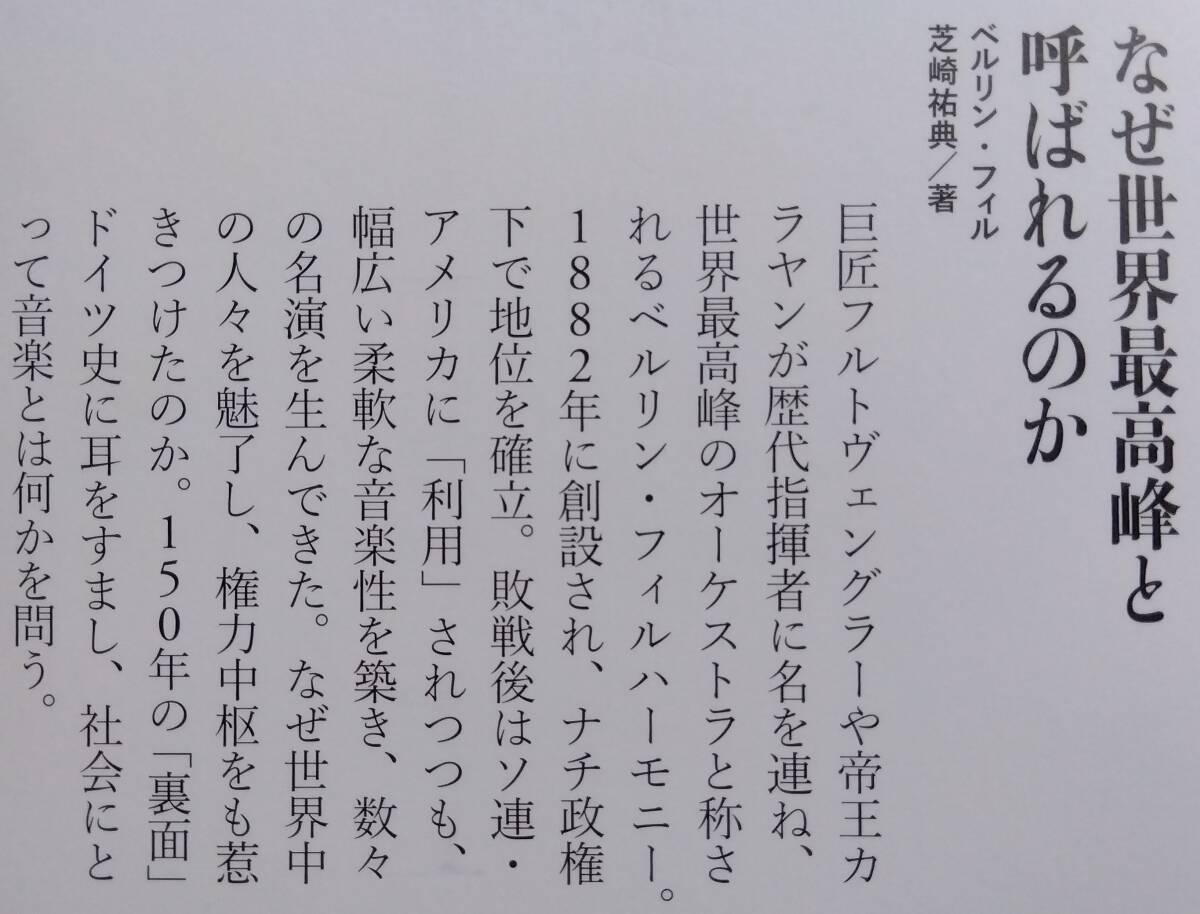 なぜ世界最高峰と
呼ばれるのか
ベルリン・フィル
芝崎祐典／著
巨匠フルトヴェングラーや帝王カ
ラヤンが歴代指揮者に名を連ね、
世界最高峰のオーケストラと称さ
れるベルリン・フィルハーモニー。
1882年に創設され、ナチ政権
下で地位を確立。敗戦後はソ連・
アメリカに「利用」されつつも、
幅広い柔軟な音楽性を築き、数々
の名演を生んできた。なぜ世界中
の人々を魅了し、権力中枢をも惹
きつけたのか。150年の「裏面」
ドイツ史に耳をすまし、社会にと
って音楽とは何かを問う。